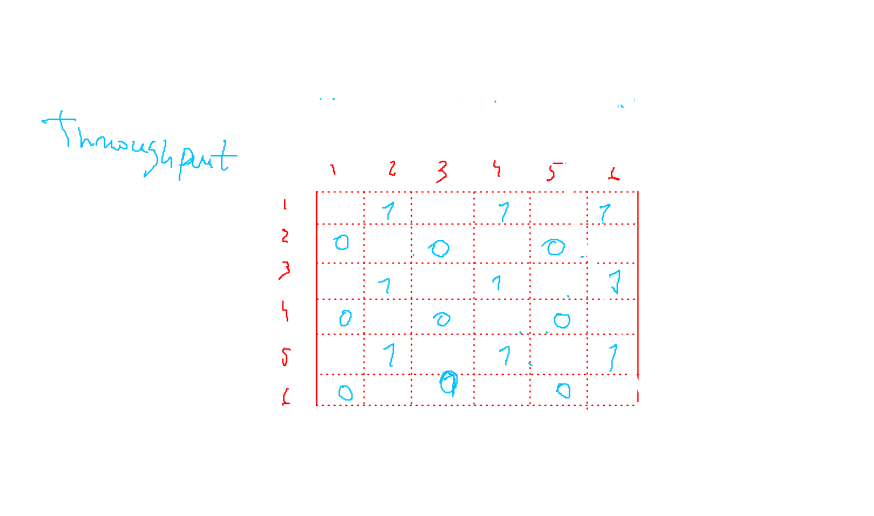 Throughput
1 2 3 4 5 6
1 1 1 1
2 0 0 0
3 1 1 1
4 0 0 0
5 1 1 1
6 0 0